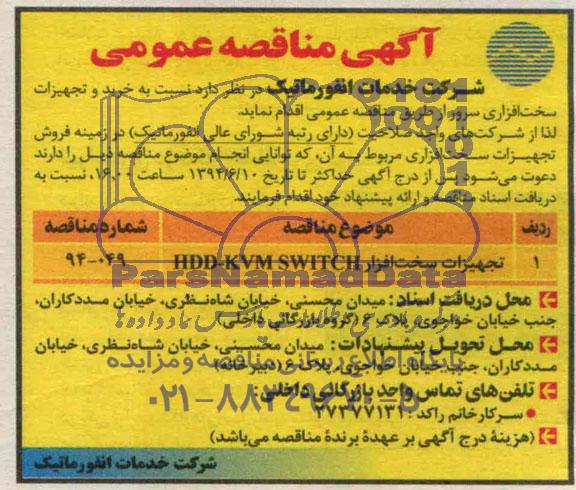 آگهی مناقصه عمومی
شرکت خدمات انفورماتیک در نظر دارد نسبت به خرید و تجهیزات
سخت‌افزاری سرور از طریق مناقصه عمومی اقدام نماید.
لذا از شرکت‌های واجد صلاحیت (دارای رتبه شورای عالی انفورماتیک) در زمینه فروش
تجهیزات سخت‌افزاری مربوط به آن، که توانایی انجام موضوع مناقصه ذیل را دارند
دعوت می‌شود پس از درج آگهی حداکثر تا تاریخ ۱۳۹۴/۶/۱۰ ساعت ۱۶،۰۰ نسبت به
دریافت اسناد مناقصه و ارائه پیشنهاد خود اقدام فرمایند.
ردیف موضوع مناقصه شماره مناقصه
۱ تجهیزات سخت‌افزار HDD-KVM SWITCH ۹۴-۰۴۹
ParsNamadData
محل دریافت اسناد: میدان محسنی، خیابان شاه‌نظری، خیابان مددکاران،
جنب خیابان خواجوی، پلاک ۶ (گروه بازرگانی داخلی)
محل تحویل پیشنهادات: میدان محسنی، خیابان شاه‌نظری، خیابان
مددکاران، جنب خیابان خواجوی، پلاک ۶ (دبیرخانه)
پایگاه اطلاع رسانی مناقصه و مزایده
تلفن‌های تماس واحد بازرگانی داخلی:
۰۲۱-۸۸۳۴۹۶۷۰-۵
سرکار خانم راکد: ۲۷۳۷۷۱۳۱
(هزینهٔ درج آگهی بر عهدهٔ برندهٔ مناقصه می‌باشد)
شرکت خدمات انفورماتیک